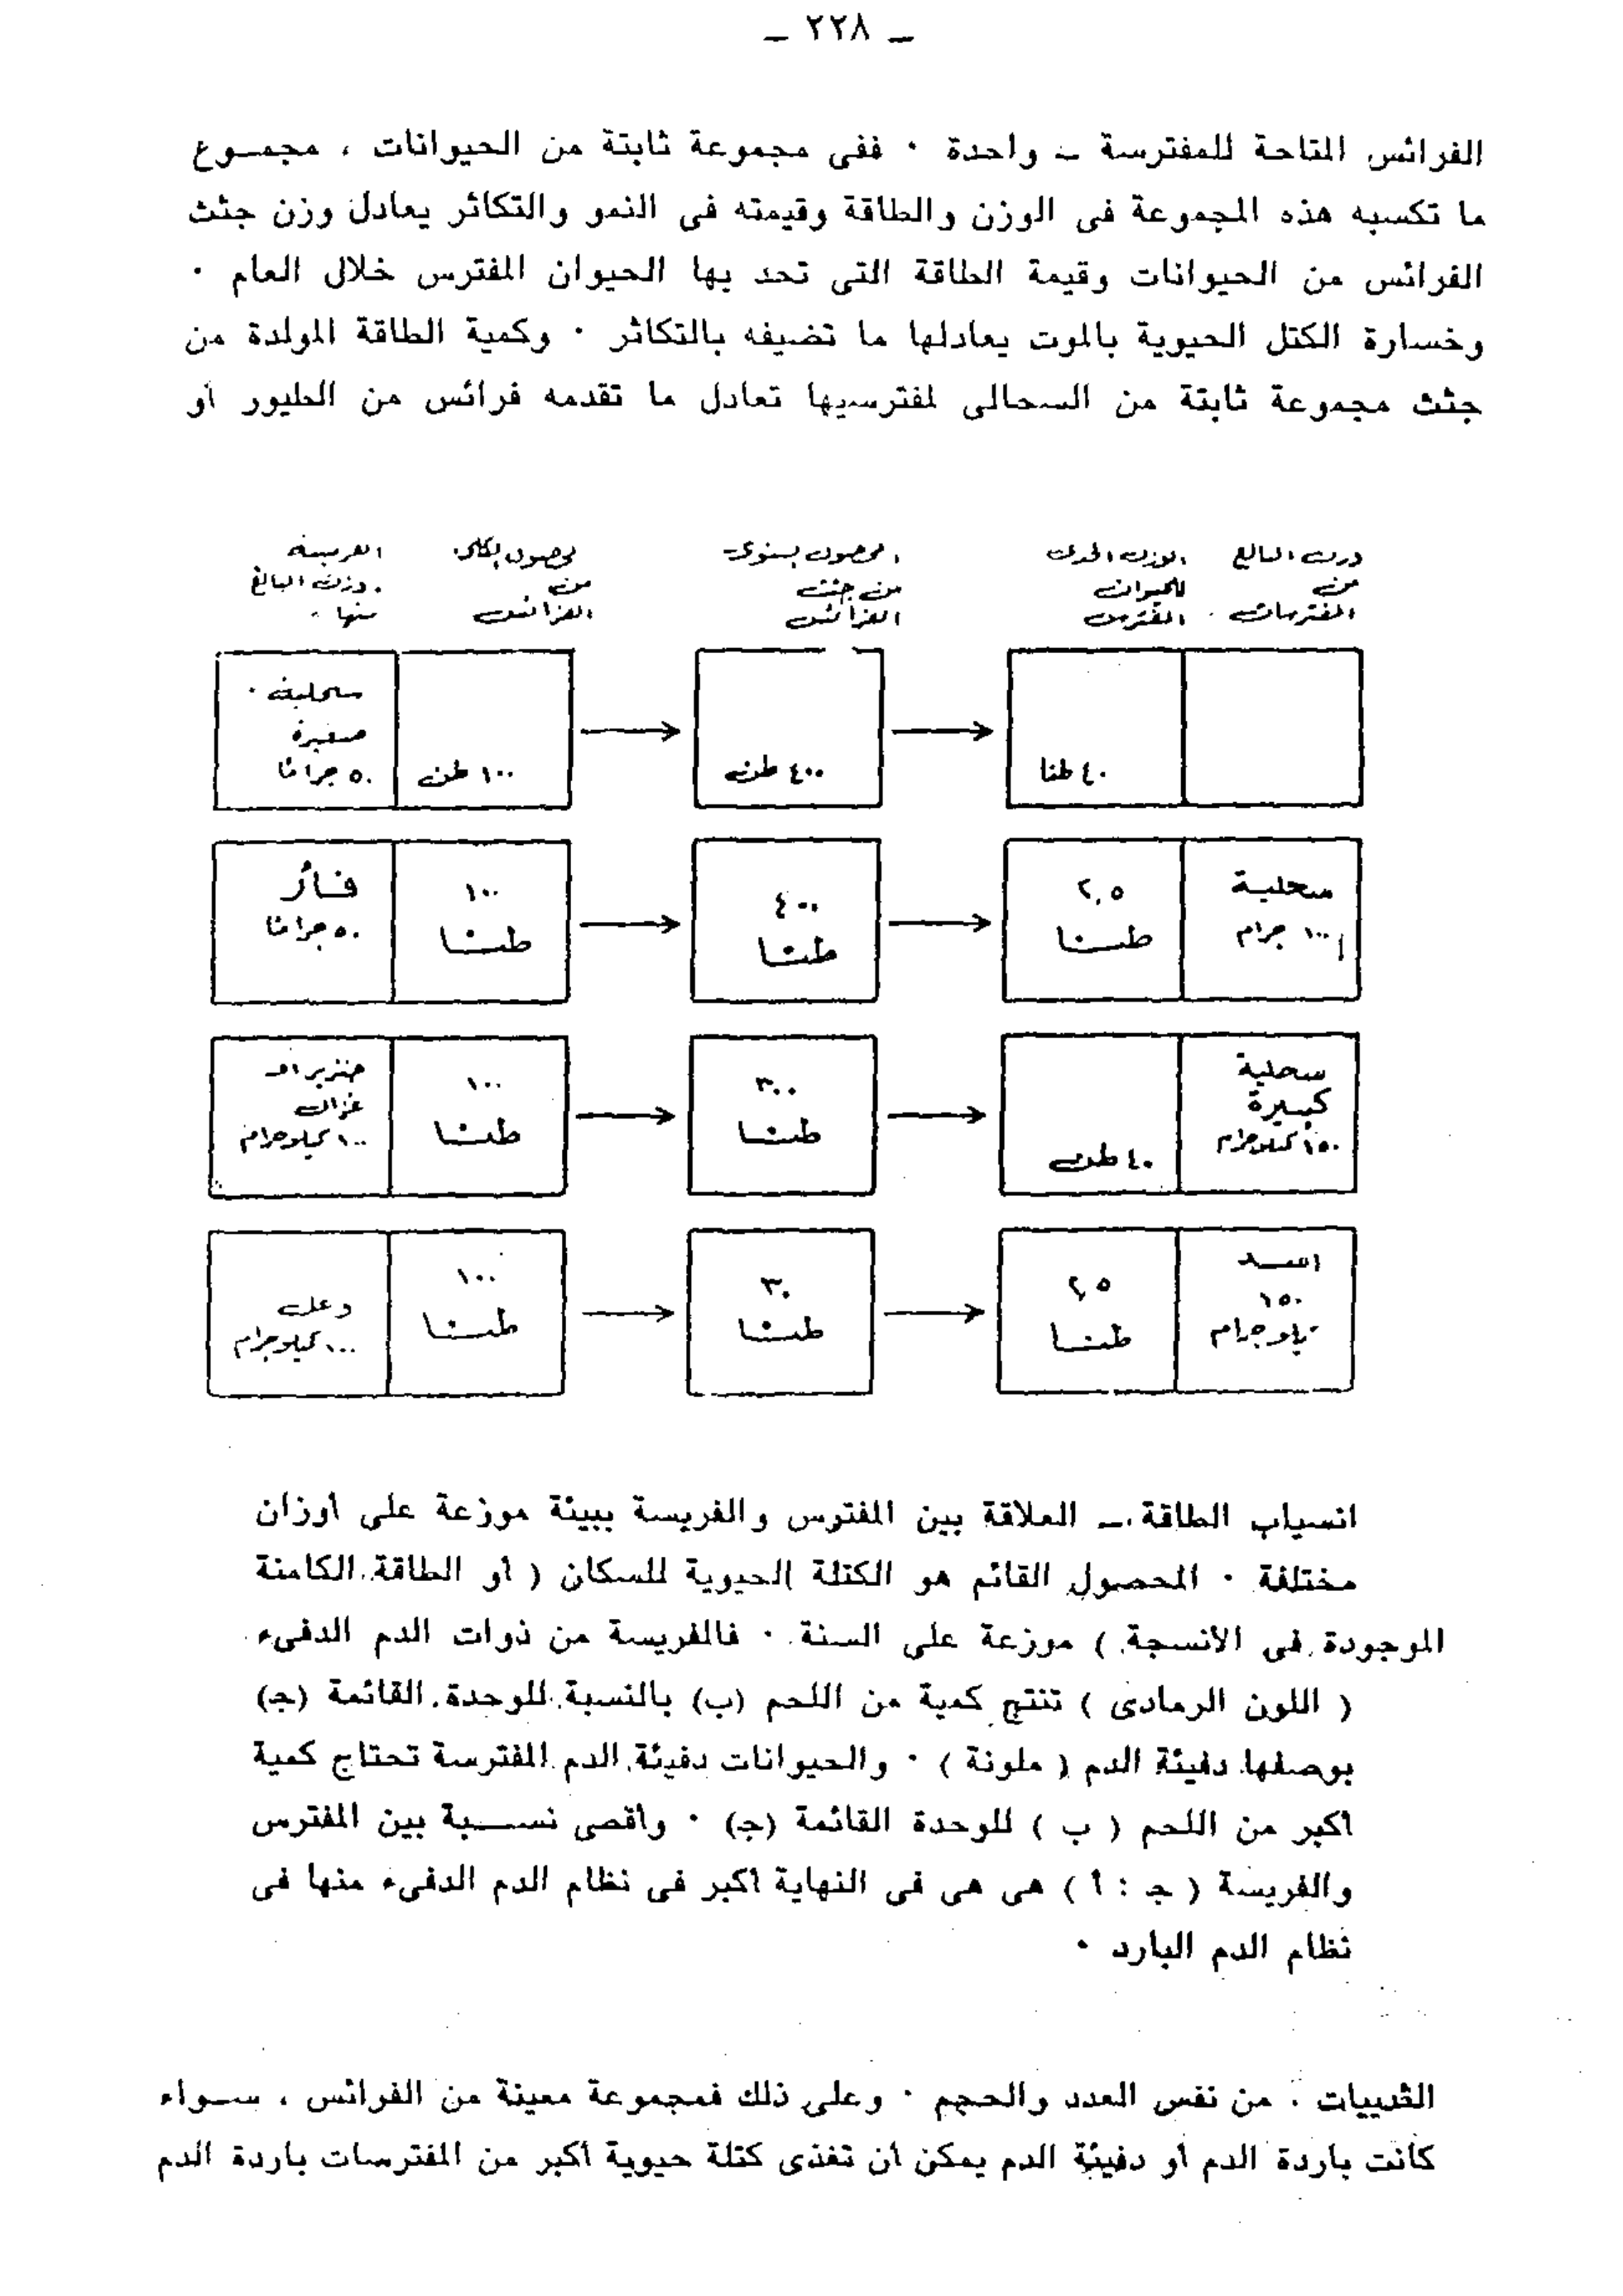 ـ ٢٢٨ ـ
الفرائس المتاحة للمفترسة ـ واحدة ٠ ففى مجموعة ثابتة من الحيوانات ، مجمـوع
ما تكسبه هذه المجموعة فى الوزن والطاقة وقيمته فى النمو والتكاثر يعادل وزن جثث
الفرائس من الحيوانات وقيمة الطاقة التى تحد بها الحيوان المفترس خلال العام ٠
وخسارة الكتل الحيوية بالموت يعادلها ما تضيفه بالتكاثر ٠ وكمية الطاقة المولدة من
جثث مجموعة ثابتة من السحالى لمفترسيها تعادل ما تقدمه فرائس من الطيور أو
البالغ من المفترسات
للحيوان المفترس
المحصول السنوى من جثث الفرائس
من الفرائس
الفريسة وزن البالغ منها
٤٠ طنا
٤٠٠ طن
١٠٠ طن
سحلية صغيرة ٥٠ جراما
سحلية ١٠٠ جرام
٢,٥ طنـا
٤٠٠ طنـا
١٠٠ طنـا
فـأر ٥٠ جراما
سحلية كبيرة ١٥٠ كيلوجرام
٤٠ طن
٣٠٠ طنـا
١٠٠ طنـا
خنزير او غزال ١٠٠ كيلوجرام
اسـد ١٥٠
٢,٥ طنـا
٣٠ طنـا
١٠٠ طنـا
وعل ١٠٠ كيلوجرام
انسياب الطاقة ـ العلاقة بين المفترس والفريسة ببيئة موزعة على أوزان
مختلفة ٠ المحصول القائم هو الكتلة الحيوية للسكان ( أو الطاقة الكامنة
الموجودة فى الأنسجة ) موزعة على السنة ٠ فالفريسة من ذوات الدم الدفىء
( اللون الرمادى ) تنتج كمية من اللحم (ب) بالنسبة للوحدة القائمة (جـ)
بوصفها دفيئة الدم ( ملونة ) ٠ والحيوانات دفيئة الدم المفترسة تحتاج كمية
أكبر من اللحم ( ب ) للوحدة القائمة (جـ) ٠ وأقصى نســبة بين المفترس
والفريسة ( جـ : أ ) هى هى فى النهاية أكبر فى نظام الدم الدفىء منها فى
نظام الدم البارد ٠
الثدييات . من نفس العدد والحجم ٠ وعلى ذلك فمجموعة معينة من الفرائس ، سـواء
كانت باردة الدم أو دفيئة الدم يمكن أن تغذى كتلة حيوية أكبر من المفترسات باردة الدم